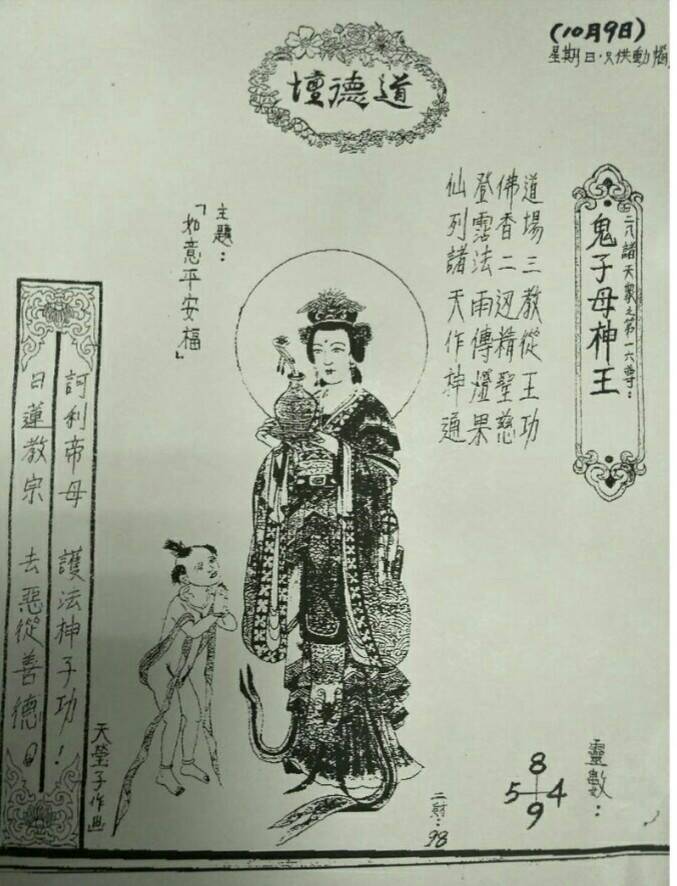 (10月9日)
星期日·只供動腦
道德壇
二八諸天眾之第一六尊：
鬼子母神王
道場三教從王功
佛香二迎精聖慈
登法雨傳果
仙列諸天作神通
主題：
「如意平安福」
訶利帝母 護法神子功！
日蓮教宗 去惡從善德。
天瑩子作画
二：98
靈數：
8
5 4
9